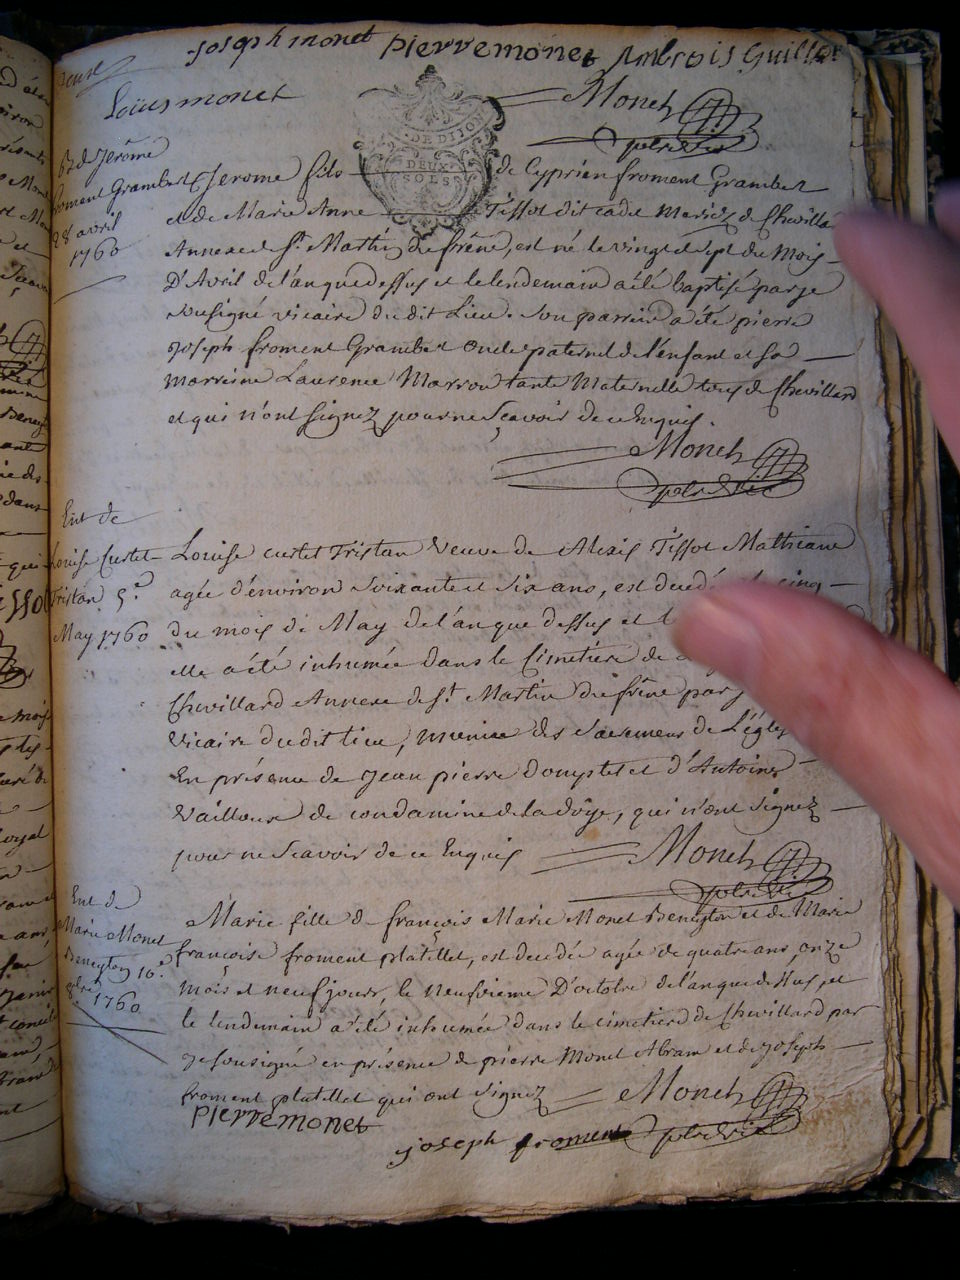 joseph monet pierre monet Ambrois Guillot
Loüis monet
Monet
ptre & vic
DE DIJON
DEUX
SOLS
B. d Jerôme
froment Grambert
28 avril
1760
Jerome fils de Cyprien froment Grambert
et de Marie Anne Tissot dit cadet Mariéz de Chevillard
Annexe de St. Martin du frêne, est né le vingt et sept du Mois
D'Avril de l'an que dessus et le lendemain a été baptisé par je
sousigné vicaire du dit Lieu. Son parrein a été pierre
joseph froment Grambert Oncle paternel de l'enfant et sa
marreine Laurence Marron tante Maternelle tous de Chevillard
et qui n'ont signez pour ne sçavoir de ce Enquis.
Monet
ptre & vic
Ent de
Louise Curtet
Tristan 5.e
May 1760
Louise curtet Tristan Veuve de Alexis Tissot Mathieane
agée d'environ soixante et six ans, est decedée le cinq
du mois de May de l'an que dessus et le
elle a été inhumée dans le Cimetiere de
Chevillard Annexe de St. Martin du frêne par je
Vicaire du dit lieu, munie des sacremens de L'église
En présence de jean pierre Douplet et d'Antoine
Vailloux de condamine de la doye, qui n'ont signez
pour ne sçavoir de ce Enquis Monet
ptre & vic
Ent de
Marie Monet
Beneyton 10.e
8bre 1760
Marie fille de françois Marie Monet Beneyton et de Marie
françoise froment platillet, est decedée agée de quatre ans, onze
mois et neuf jours, le neufvieme D'octobre de l'an que dessus, et
le lendemain a été inhumée dans le cimetiere de Chevillard par
je sousigné en présence de pierre Monet Abram et de joseph
froment platillet qui ont signez Monet
pierre monet
joseph froment ptre & vic